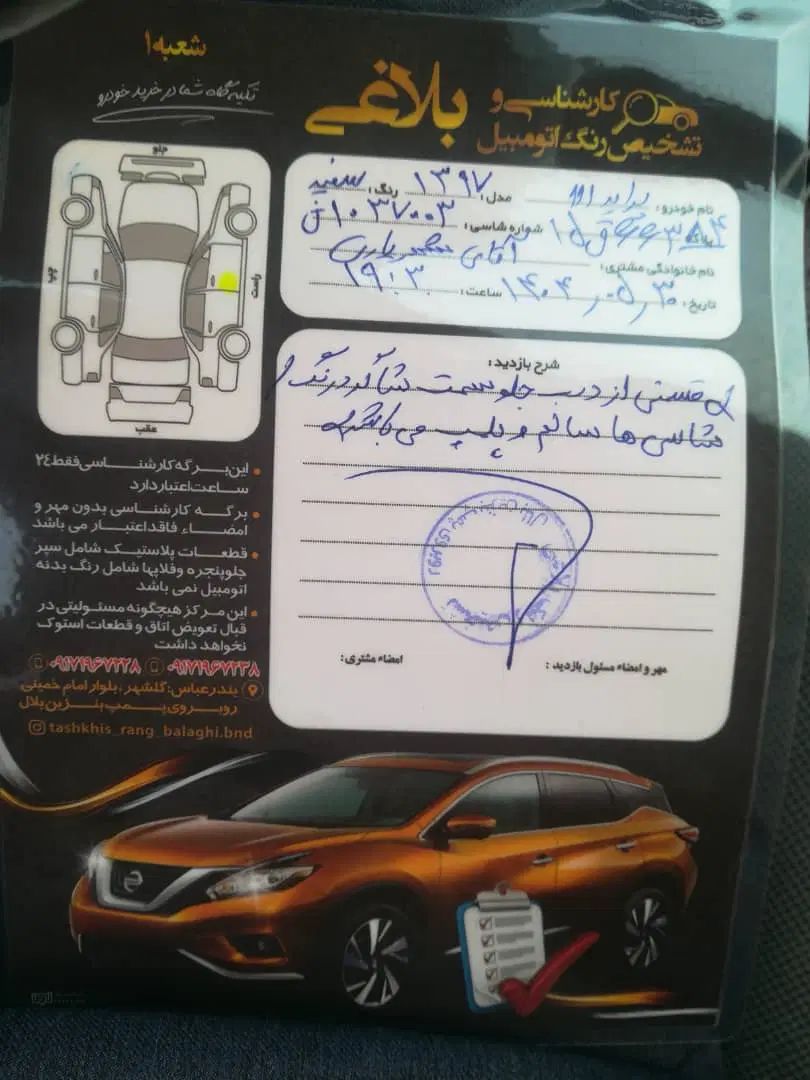 شعبه ۱
تکیه گاه شما در خرید خودرو
کارشناسی و
تشخیص رنگ اتومبیل
بلاغی
نام خودرو: پراید
مدل: ۱۳۹۷
رنگ: سفید
پلاک:
شماره شاسی: ۱۰۳۷۰۰۳
نام خانوادگی مشتری: آقای
تاریخ: ۳۰ ر ۵ ر ۱۴۰۴
ساعت: ۱۹:۳۰
جلو
راست
چپ
عقب
شرح بازدید:
قسمتی از درب جلو سمت شاگرد رنگ
شاسی ها سالم و پلمپ می باشد
مهر و امضاء مسئول بازدید :
امضاء مشتری:
این برگه کارشناسی فقط ۲٤
ساعت اعتبار دارد
برگه کارشناسی بدون مهر و
امضاء فاقد اعتبار می باشد
قطعات پلاستیک شامل سپر
جلوپنجره و فلاپها شامل رنگ بدنه
اتومبیل نمی باشد
این مرکز هیچگونه مسئولیتی در
قبال تعویض اتاق و قطعات استوک
نخواهد داشت
۰۹۱۷۱۹۶۷۲۳۸ ۰۹۱۷۱۹۶۷۲۲۸
بندرعباس: گلشهر، بلوار امام خمینی
روبروی پمپ بنزین بلال
tashkhis_rang_balaghi.bnd